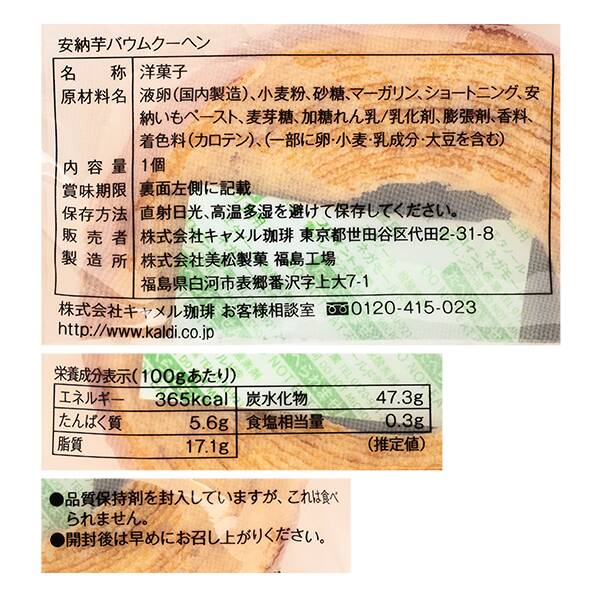 安納芋バウムクーヘン
名称 洋菓子
原材料名 液卵(国内製造)、小麦粉、砂糖、マーガリン、ショートニング、安
納いもペースト、麦芽糖、加糖れん乳/乳化剤、膨張剤、香料、
着色料(カロテン)、(一部に卵・小麦・乳成分・大豆を含む)
内容量 1個
賞味期限 裏面左側に記載
保存方法 直射日光、高温多湿を避けて保存してください。
販売者 株式会社キャメル珈琲 東京都世田谷区代田2-31-8
製造所 株式会社美松製菓 福島工場
福島県白河市表郷番沢字上大7-1
株式会社キャメル珈琲 お客様相談室 0120-415-023
http://www.kaldi.co.jp
栄養成分表示(100gあたり)
エネルギー 365kcal 炭水化物 47.3g
たんぱく質 5.6g 食塩相当量 0.3g
脂質 17.1g (推定値)
●品質保持剤を封入していますが、これは食べ
られません。
●開封後は早めにお召し上がりください。